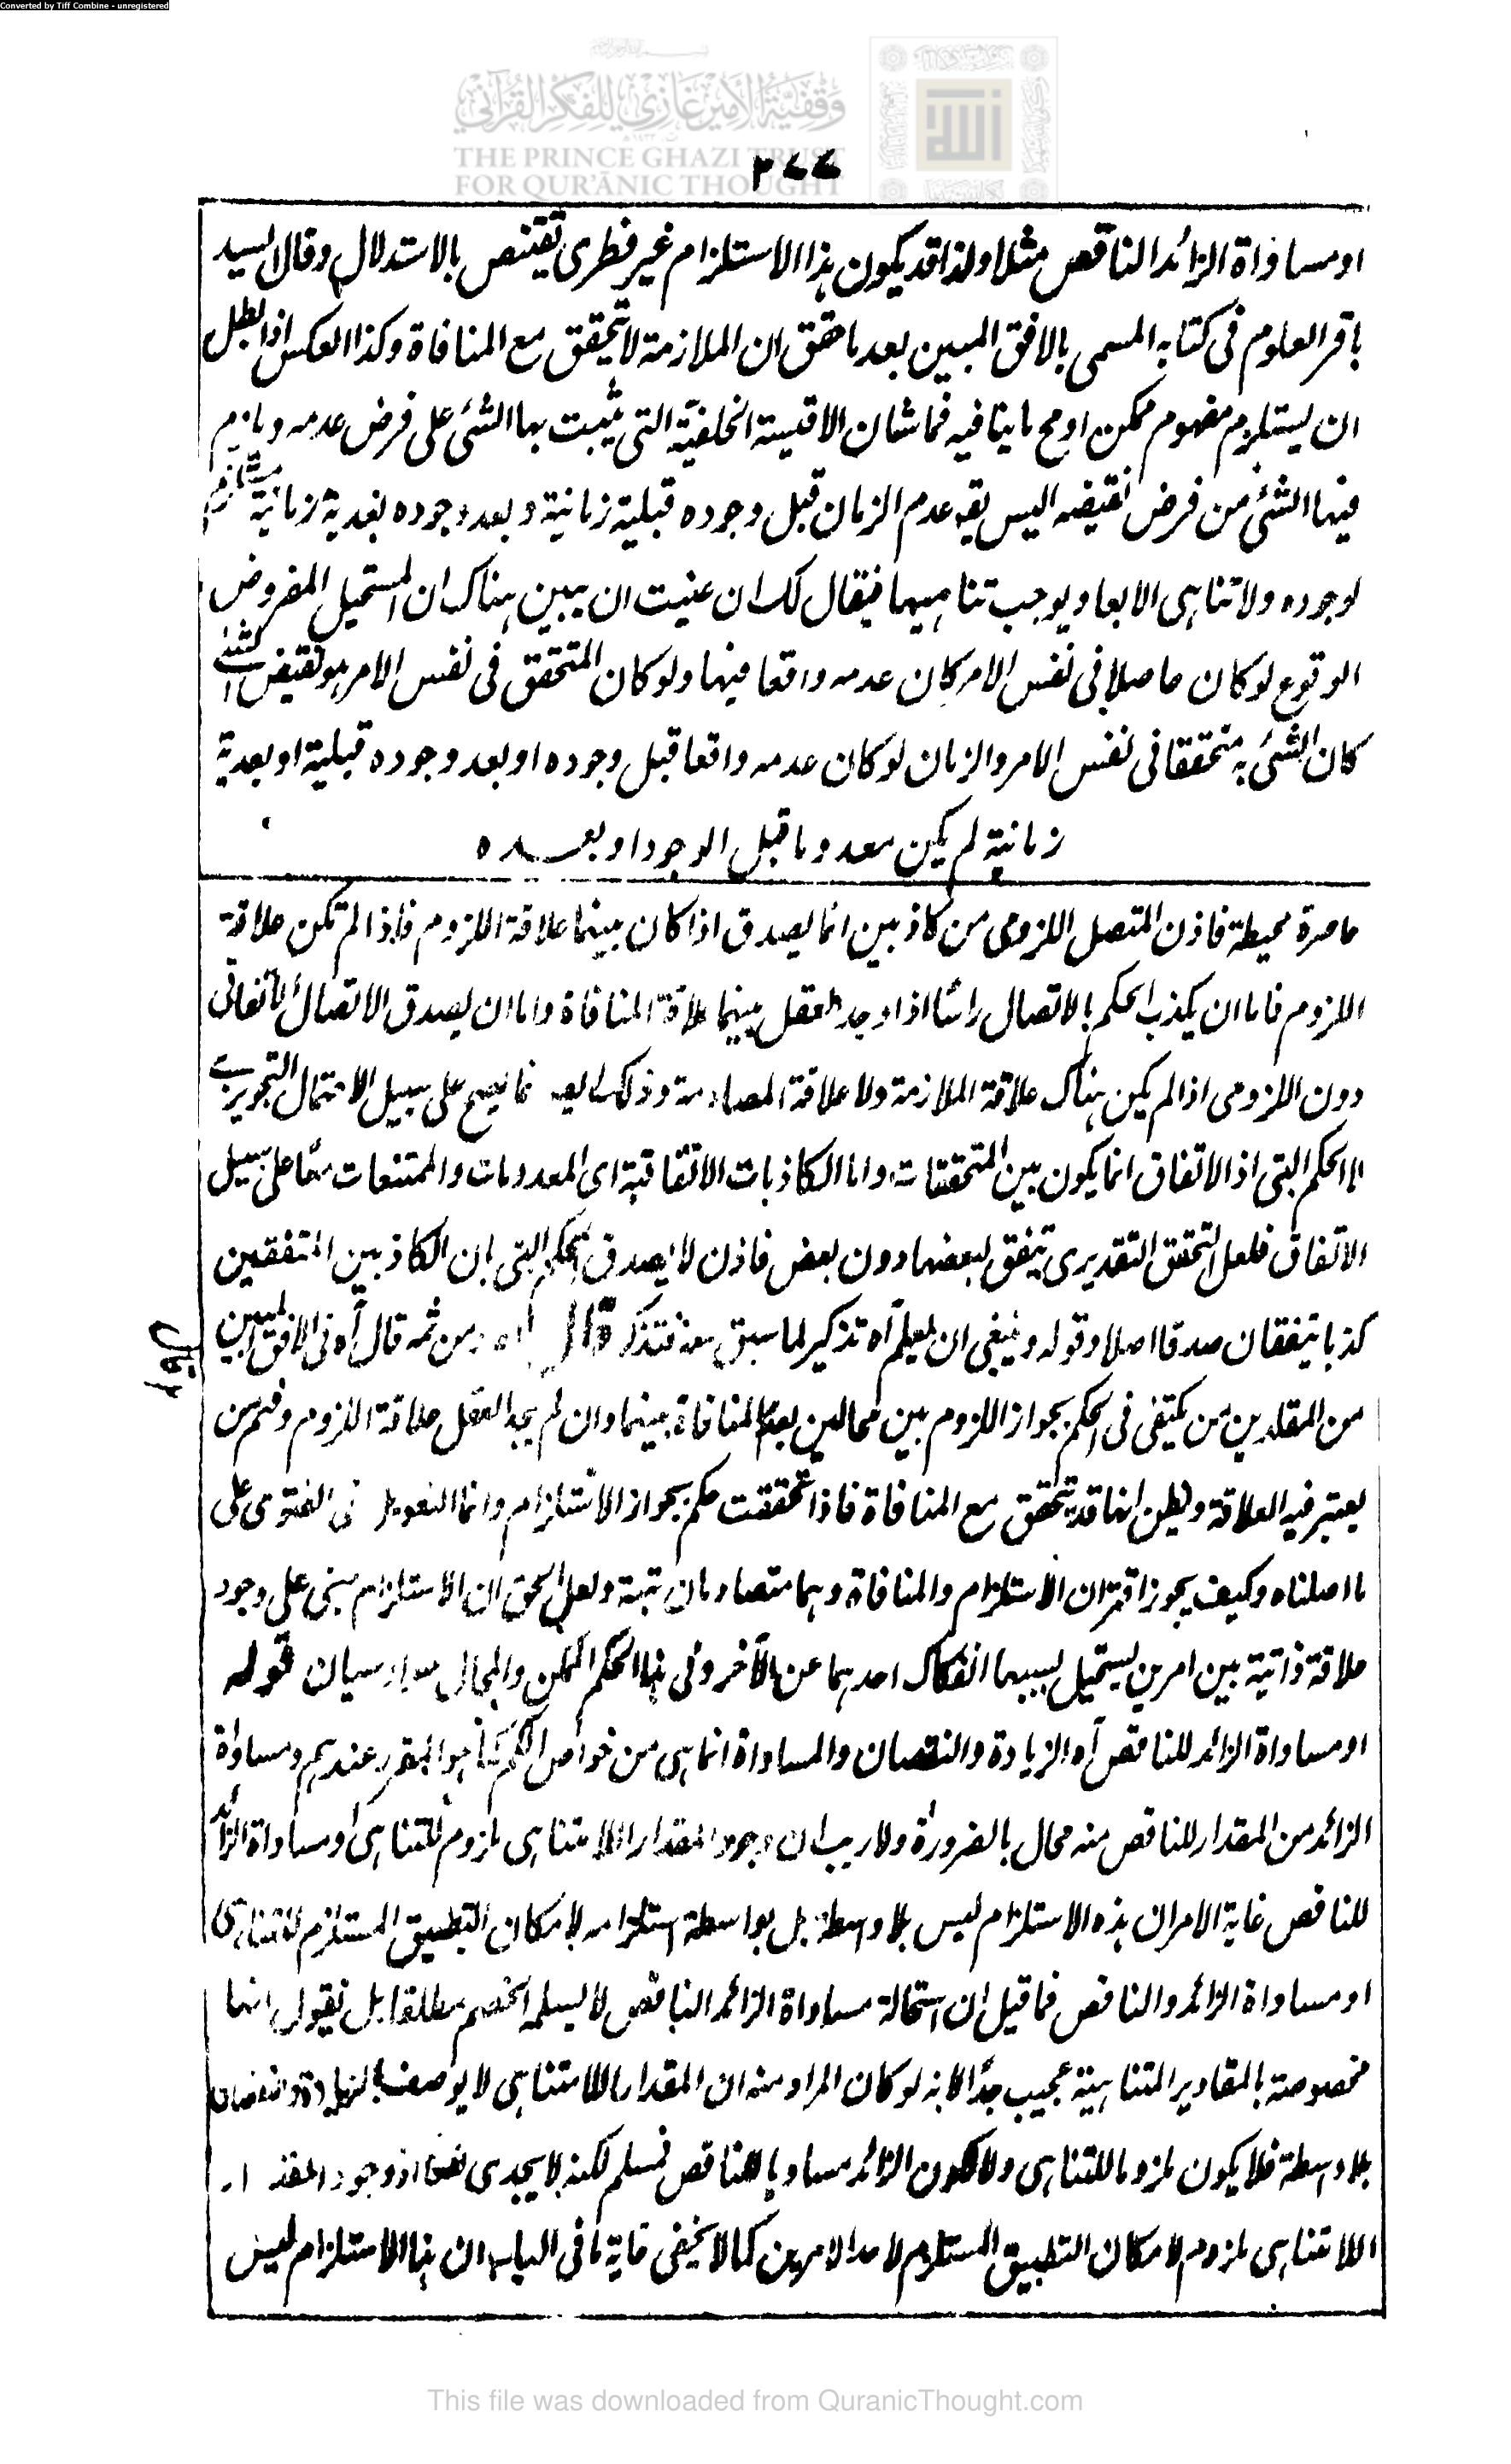 Converted by Tiff Combine - unregistered
وقفية الأمير غازي للفكر القرآني
THE PRINCE GHAZI TRUST
FOR QUR'ĀNIC THOUGHT
٢٧٧
او مساواة الزائد الناقص مثلا ولذا قد يكون هذا الاستلزام غير فطرى يقتنص بالاستدلال وقال السيد
باقر العلوم فى كتابه المسمى بالافق المبين بعد ما حقق ان الملازمة لا تتحقق مع المنافاة وكذا العكس اذا بطل
ان يستلزم مفهوم ممكن او مح ما ينافيه فما شان الاقيسة الخلفية التى يثبت بها الشئ على فرض عدمه ويلزم
فيها الشئ من فرض نقيضه اليس يقه عدم الزمان قبل وجوده قبلية زمانية وبعد وجوده بعدية زمانية مستلزم
لوجوده ولا تناهى الابعاد يوجب تناهيها فيقال لك ان عنيت ان يبين هناك ان المستحيل المفروض
الوقوع لو كان حاصلا فى نفس الامر كان عدمه واقعا فيها ولو كان المتحقق فى نفس الامر هو نقيض الشئ
كان الشئ به متحققا فى نفس الامر والزمان لو كان عدمه واقعا قبل وجوده او بعد وجوده قبلية او بعدية
زمانية لم يكن معدوما قبل الوجود او بعده
حاصرة محيطة فاذن المتصل اللزومى من كاذبين انما يصدق اذا كان بينهما علاقة اللزوم فاذا لم تكن علاقة
اللزوم فاما ان يكذب الحكم بالاتصال راسًا اذا وجد العقل بينهما علاقة المنافاة واما ان يصدق الاتصال الاتفاقى
دون اللزومى اذا لم يكن هناك علاقة الملازمة ولا علاقة المصادمة وذلك ايضا انما يصح على سبيل الاحتمال التجويزى
لا الحكم البتى اذ الاتفاق انما يكون بين المتحققات واما الكاذبات الاتفاقية اى المعدومات والممتنعات معًا على سبيل
الاتفاق فلعل التحقق التقديرى يتفق لبعضها دون بعض فاذن لا يصدق الحكم البتى بان الكاذبين المتفقين
كذبا يتفقان صدقا اصلا وقوله وينبغى ان يعلم آه تذكير لما سبق منه فتذكر قال ومن ثمه قال آه فى الافق المبين
من المقلدين من يكتفى فى الحكم بجواز اللزوم بين محالين بعدم المنافاة بينهما وان لم يجد العقل علاقة اللزوم ومنهم من
يعتبر فيه العلاقة ويظن انها قد تتحقق مع المنافاة فاذا تحققت حكم بجواز الاستلزام وانما التعويل فى الفتوى على
ما اصلناه وكيف يجوز اقتران الاستلزام والمنافاة وهما متصادمان بتة ولعل الحق ان الاستلزام مبنى على وجود
علاقة ذاتية بين امرين يستحيل بسببها انفكاك احدهما عن الآخر وفى هذا الحكم الممكن والمحال سيان قوله
او مساواة الزائد للناقص آه الزيادة والنقصان والمساواة انما هى من خواص الكم كما هو المقرر عندهم ومساواة
الزائد من المقدار للناقص منه محال بالضرورة ولا ريب ان وجود المقدار اللامتناهى ملزوم للتناهى او مساواة الزائد
للناقص غاية الامر ان هذه الاستلزام ليس بلا واسطة بل بواسطة استلزامه لامكان التطبيق المستلزم للتناهى
او مساواة الزائد والناقص فما قيل ان استحالة مساواة الزائد الناقص لا يسلمه الخصم مطلقا بل نقول انها
مخصوصة بالمقادير المتناهية عجيب جدًا لانه لو كان المراد منه ان المقدار اللامتناهى لا يوصف بالزيادة والنقصان
بلا واسطة فلا يكون ملزوما للتناهى ولا لكون الزائد مساويا للناقص فمسلم لكنه لا يجدى نفعًا اذ وجود المقدار
اللامتناهى ملزوم لامكان التطبيق المستلزم لاحد الامرين كما لا يخفى غاية ما فى الباب ان هذا الاستلزام ليس
This file was downloaded from QuranicThought.com